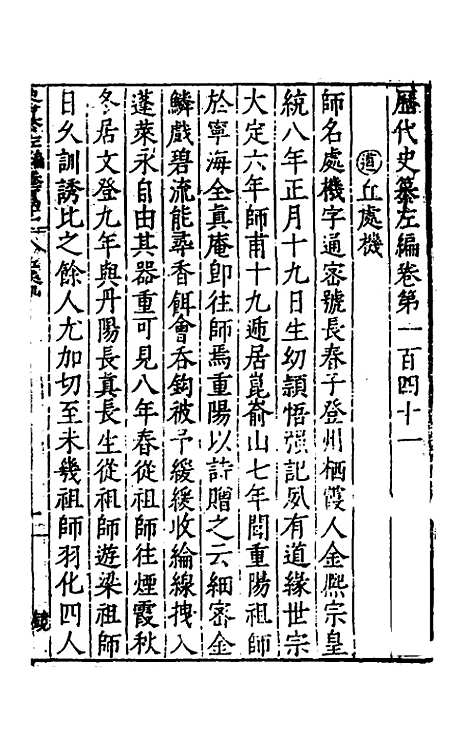 歷代史纂左編卷第一百四十一
道丘處機
師名處機字通密號長春子登州栖霞人金熈宗皇
統八年正月十九日生幼頴悟強記夙有道緣世宗
大定六年師甫十九遯居崑嵛山七年聞重陽祖師
於寧海全眞庵卽往師焉重陽以詩贈之云細密金
鱗戲碧流能尋香餌會吞鈎被予緩緩收綸線拽入
蓬萊永自由其器重可見八年春從祖師往煙霞秋
冬居文登九年與丹陽長眞長生從祖師遊梁祖師
日夂訓誘比之餘人尤加切至未幾祖師羽化四人